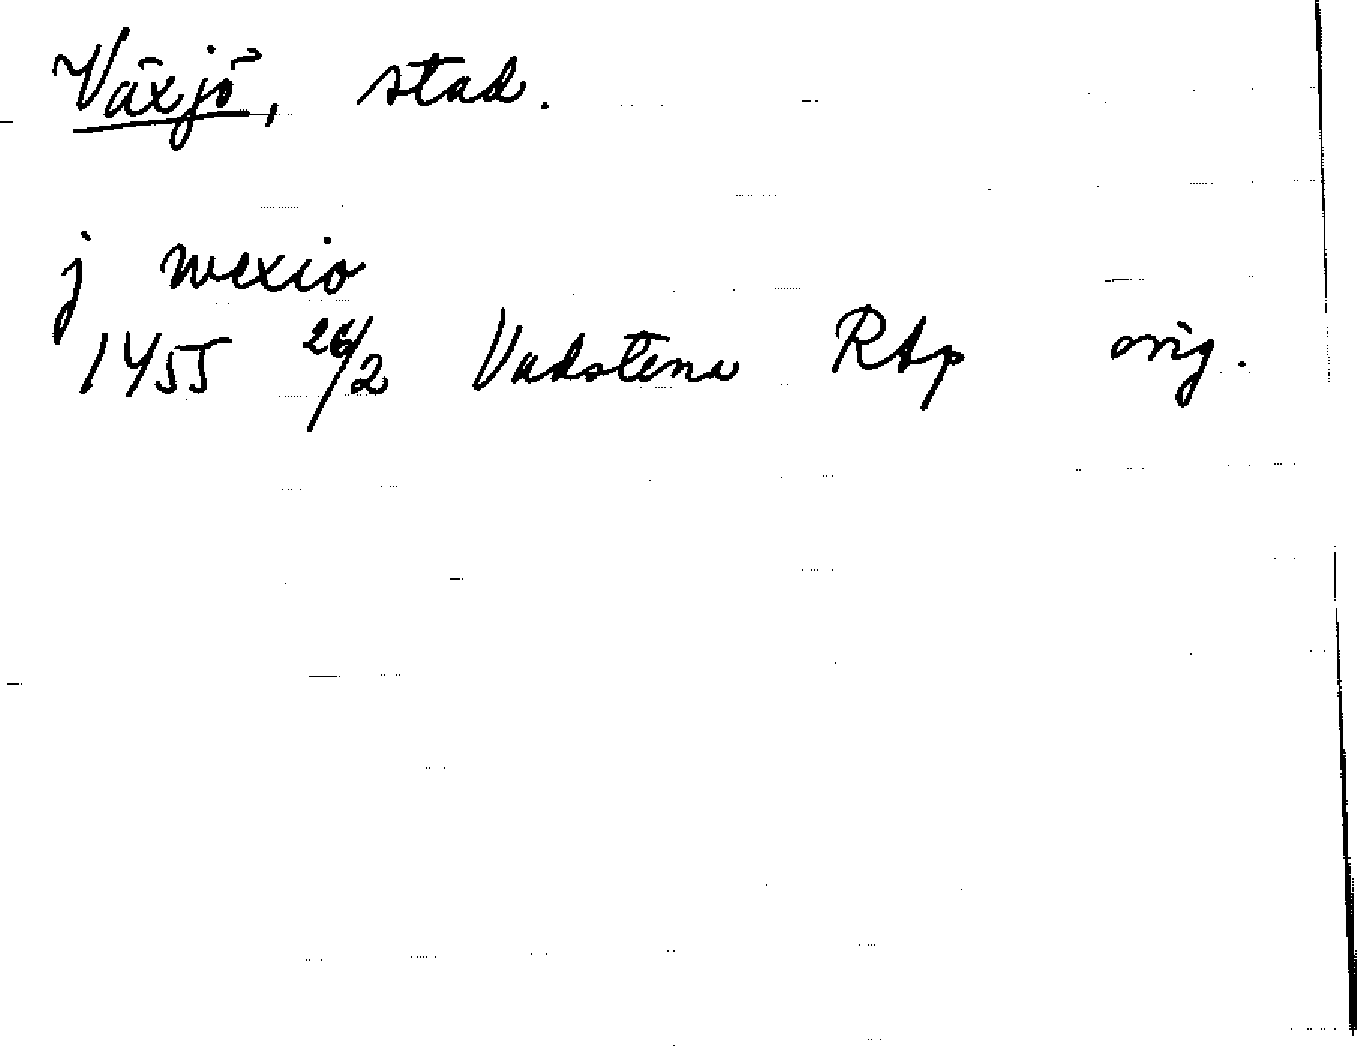 Växjö, stad.
j wexio
1455 26/2 Vadstena RAp orig.